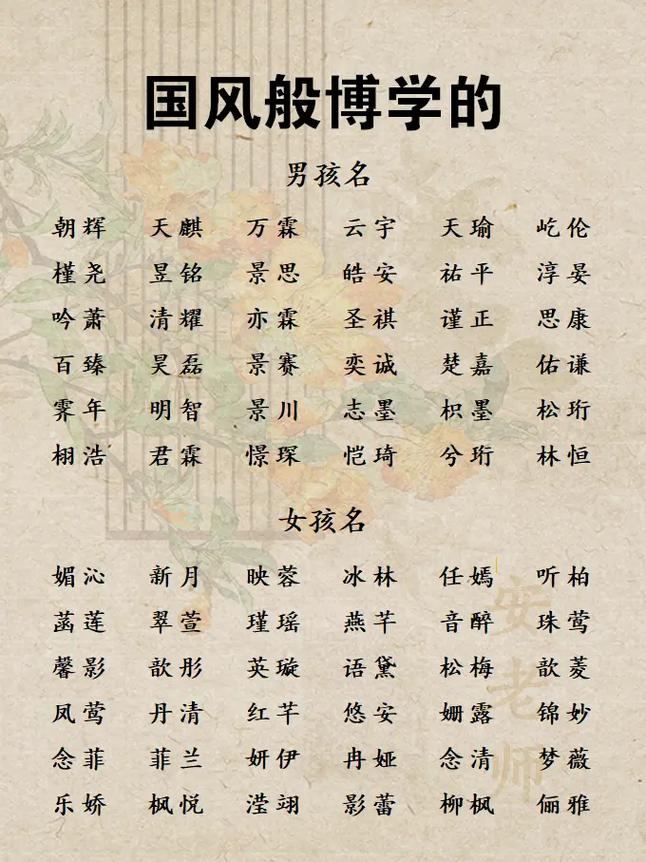 国风般博学的
男孩名
朝辉 天麒 万霖 云宇 天瑜 屹伦
槿尧 昱铭 景思 皓安 祐平 淳晏
吟萧 清耀 亦霖 圣祺 谨正 思康
百臻 昊磊 景赛 奕诚 楚嘉 佑谦
霁年 明智 景川 志墨 枳墨 松珩
栩浩 君霖 憬琛 恺琦 兮珩 林恒
女孩名
媚沁 新月 映蓉 冰林 任嫣 听柏
菡莲 翠萱 瑾瑶 燕芊 音醉 珠莺
馨影 歆彤 英璇 语黛 松梅 歆菱
凤莺 丹清 红芊 悠安 姗露 锦妙
念菲 菲兰 妍伊 冉娅 念清 梦薇
乐娇 枫悦 滢翊 影蕾 柳枫 俪雅
安老师